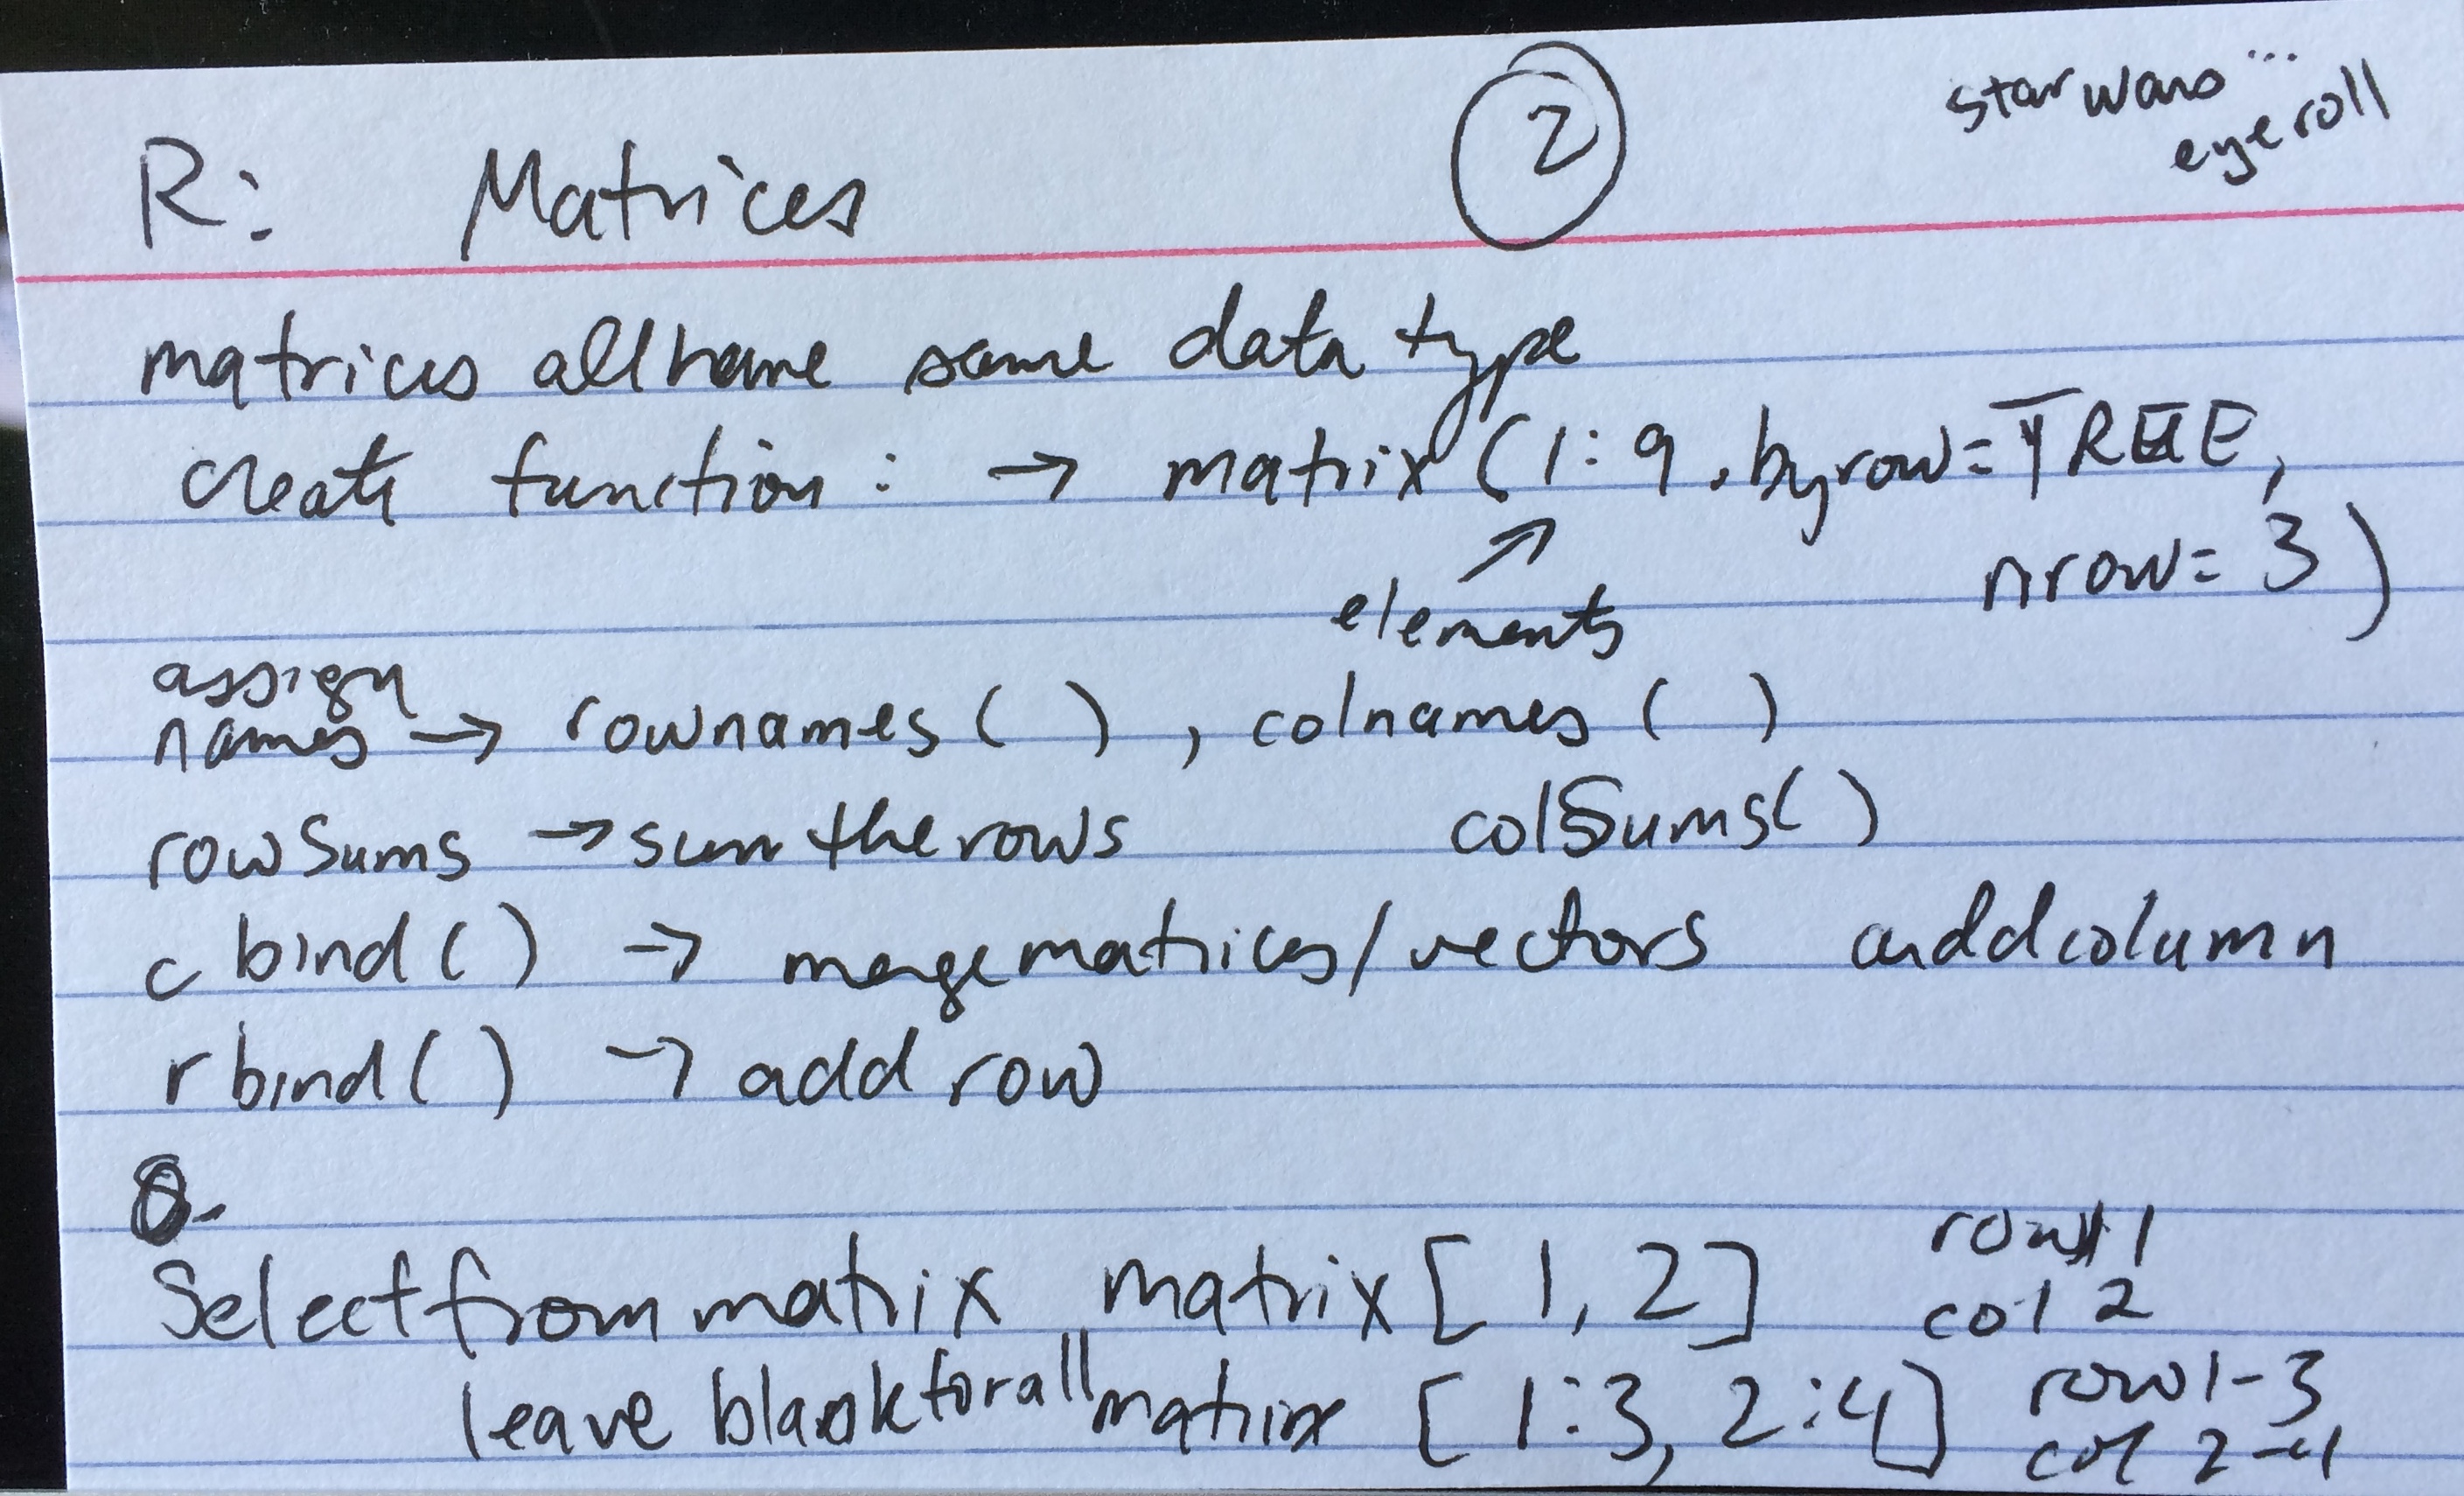 R: Matrices 2 star wars ...
eyeroll
matrices all have same data type
create function : → matrix (1:9, byrow=TRUE,
nrow=3)
elements
assign
names → rownames ( ) , colnames ( )
rowSums → sum the rows colSums()
cbind() → merge matrices/vectors add column
rbind() → add row
Select from matrix matrix [1,2] row 1
col 2
leave blank for all matrix [1:3, 2:4] row 1-3
col 2-4